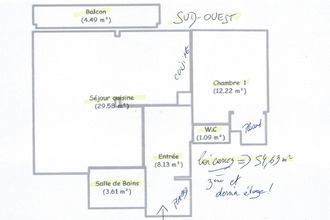 Balcon
(4.49 m²)
SUD-OUEST
Séjour cuisine
(29.58 m²)
Chambre 1
(12.22 m²)
W.C
(1.09 m²)
Placard
Entrée
(8.13 m²)
Loi carrez => 54,63 m²
3ème et
dernier étage!
Salle de Bains
(3.61 m²)